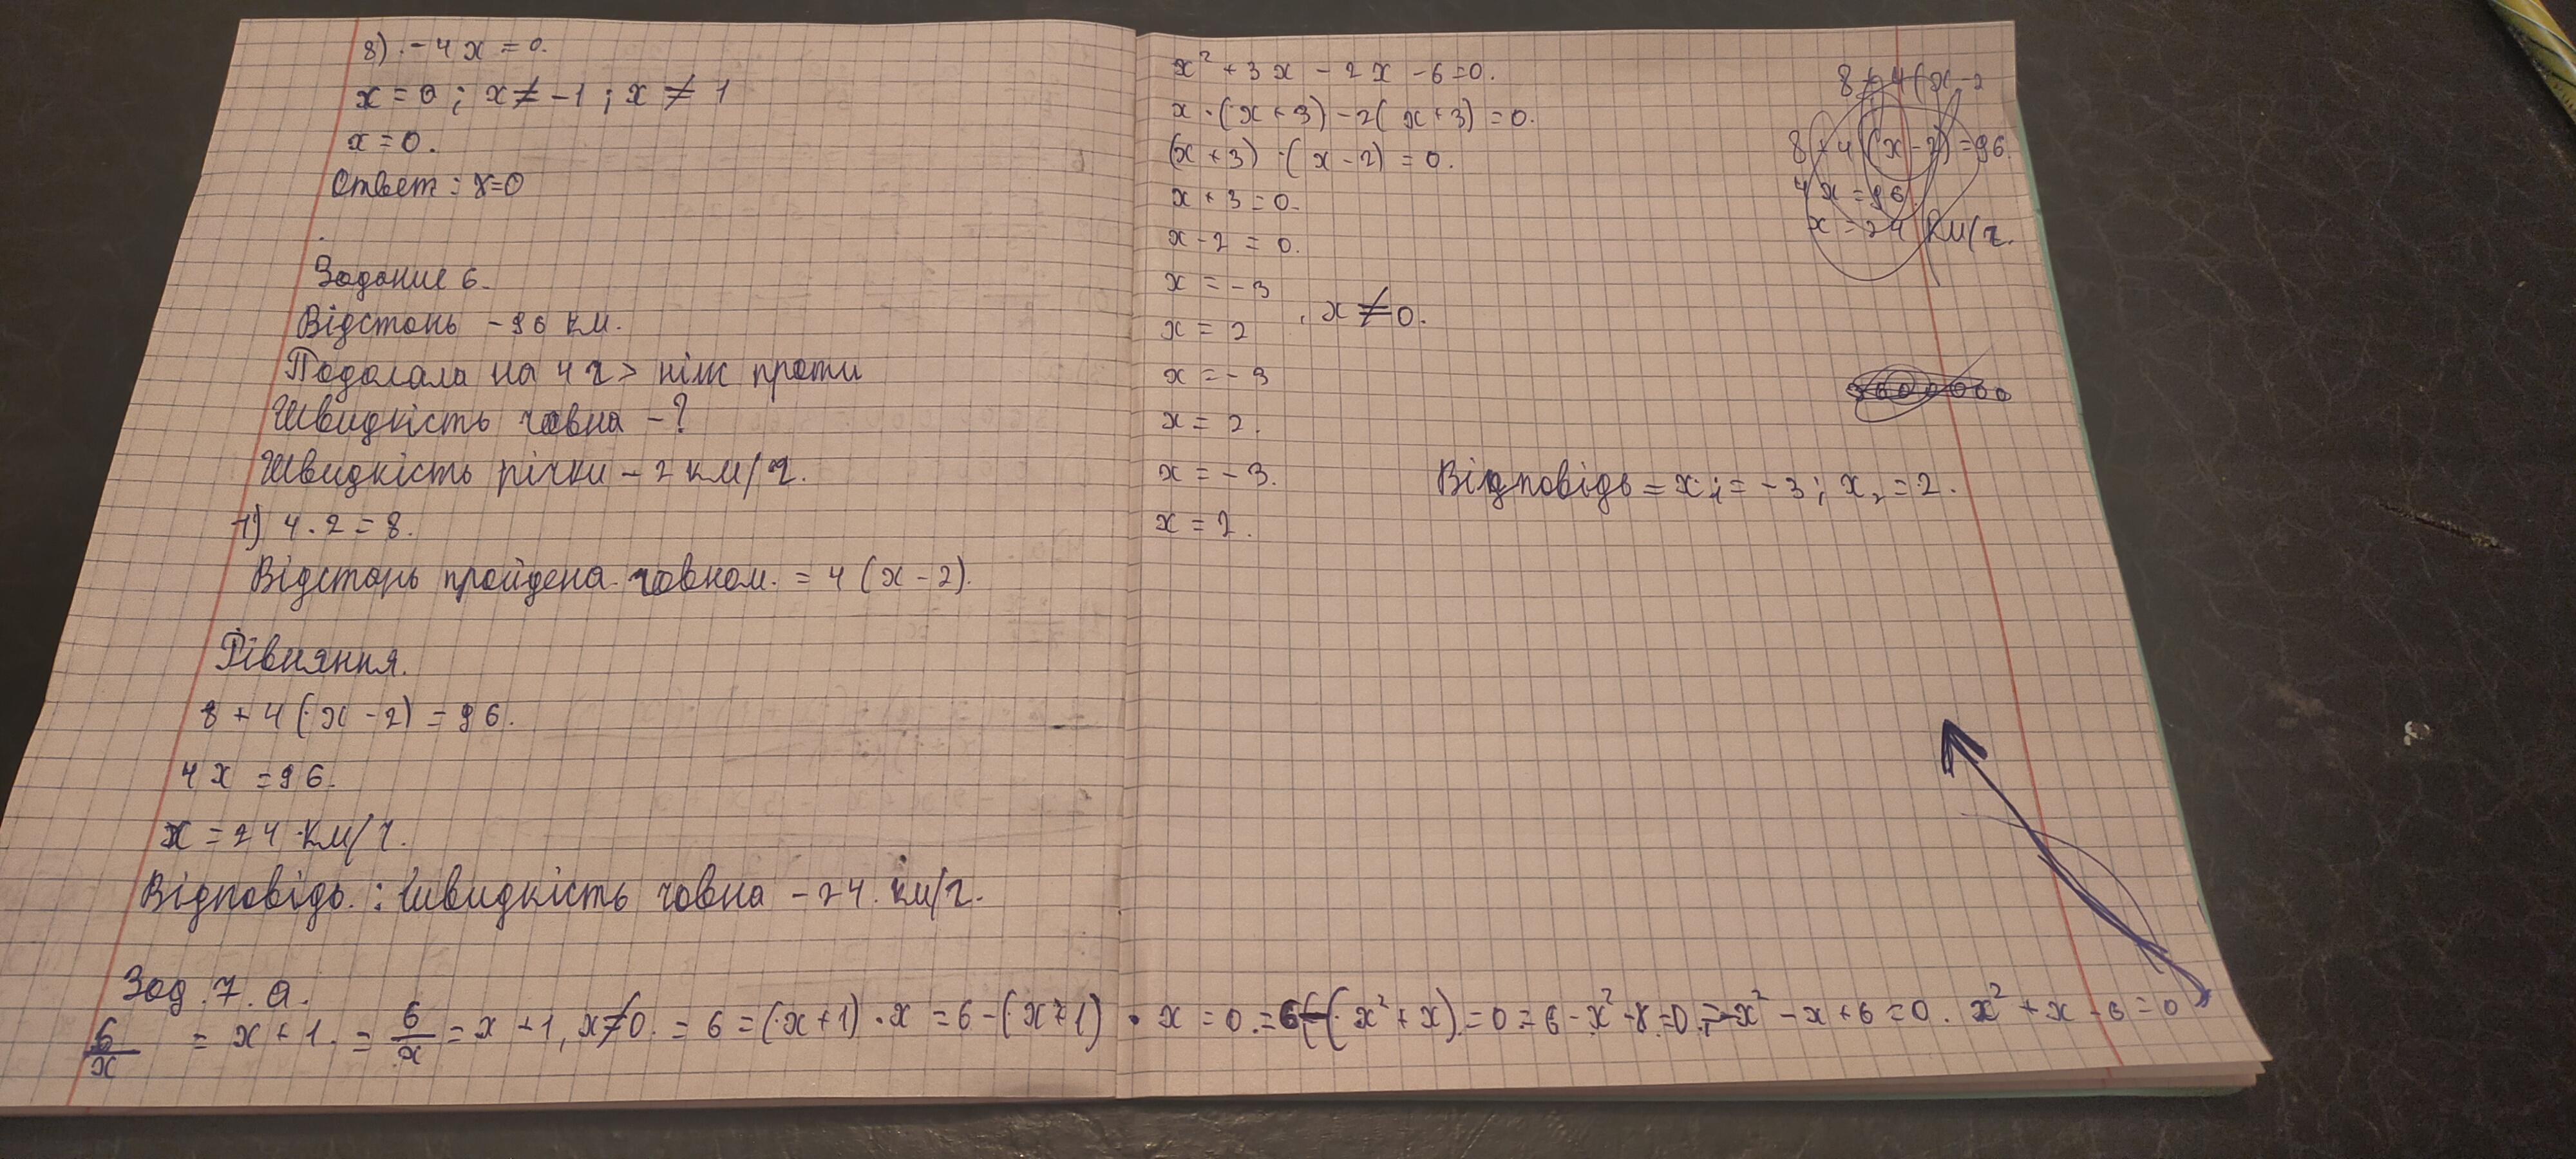 8) -4x = 0.
x = 0; x ≠ -1; x ≠ 1
x = 0.
Ответ: x=0
Задание 6.
Відстань - 96 км.
Подолала на 4 г > ніж проти
Швидкість човна - ?
Швидкість річки - 2 км/г.
1) 4 · 2 = 8.
Відстань пройдена човном. = 4 (x - 2).
Рівняння.
8 + 4 (x - 2) = 96.
4x = 96.
x = 24 км/г.
Відповідь: Швидкість човна - 24 км/г.
Зад. 7. а.
6/x = x + 1. = 6/x = x + 1, x ≠ 0. = 6 = (x + 1) · x = 6 - (x + 1) · x = 0. = 6 - (x² + x) = 0 = 6 - x² - x = 0 = -x² - x + 6 = 0. x² + x - 6 = 0
x² + 3x - 2x - 6 = 0.
x · (x + 3) - 2(x + 3) = 0.
(x + 3) · (x - 2) = 0.
x + 3 = 0.
x - 2 = 0.
x = -3
x = 2 , x ≠ 0.
x = -3
x = 2.
x = -3.
x = 2.
Відповідь = x₁ = -3; x₂ = 2.
8 + 4 (x - 2
8 + 4 (x - 2) = 96.
4x = 96.
x = 24 км/г.